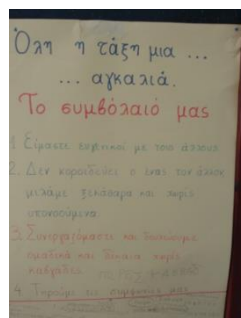 Όλη η τάξη μια ...
... αγκαλιά.
Το συμβόλαιό μας
1. Είμαστε ευγενικοί με τους άλλους
2. Δεν κοροϊδεύει ο ένας τον άλλον
μιλάμε ξεκάθαρα και χωρίς
υπονοούμενα
3. Συνεργαζόμαστε και δουλεύουμε
ομαδικά και δίκαια χωρίς
καβγάδες.
4. Τηρούμε τις συμφωνίες μας